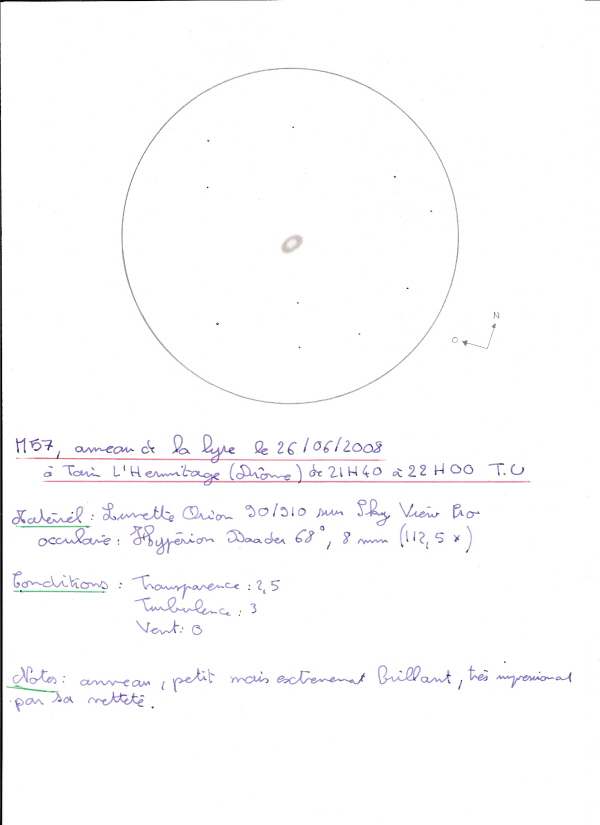 N
O
M57, anneau de la lyre le 26/06/2008
à Tain L'Hermitage (Drôme) de 21H40 à 22H00 T.U
Matériel : Lunette Orion 90/910 sur Sky View Pro
occulaire : Hypérion Baader 68°, 8 mm (112,5 x)
Conditions : Transparence : 2,5
Turbulence : 3
Vent : 0
Notes : anneau, petit mais extremenat brillant, très impressionat
par sa netteté.